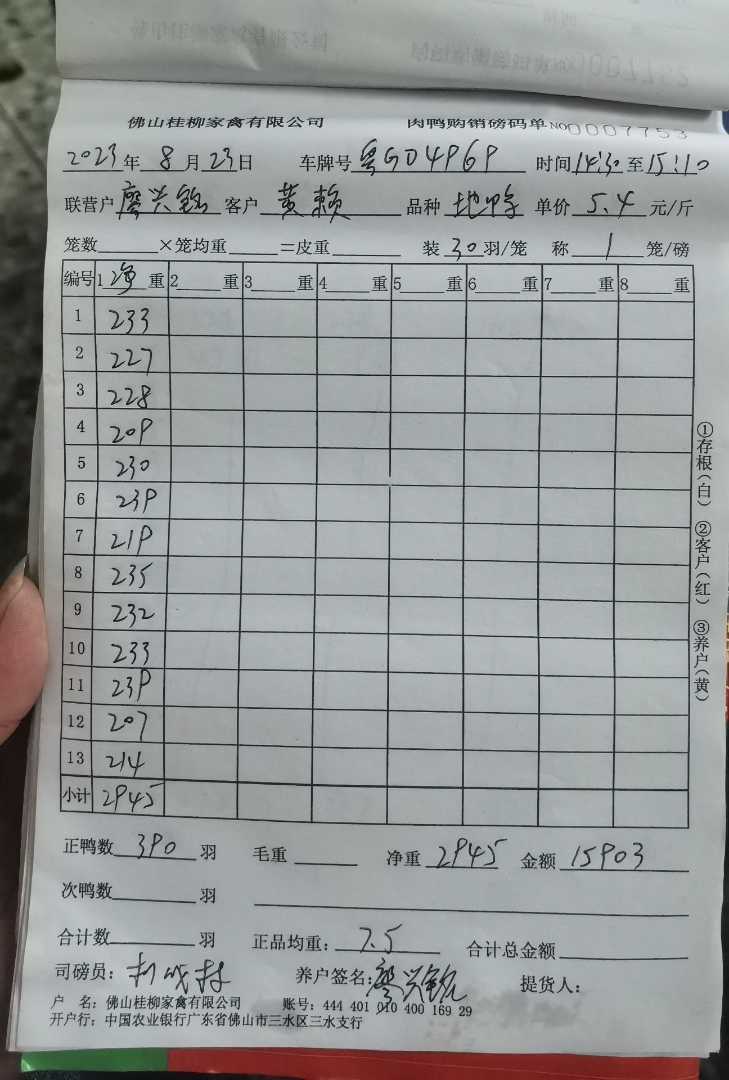 佛山桂柳家禽有限公司 肉鸭购销磅码单 NO 0007753
2023年 8月23日 车牌号 粤G04969 时间 14:30 至 15:10
联营户 廖兴锐 客户 黄赖 品种 地鸭 单价 5.4 元/斤
笼数 ×笼均重 =皮重 装 30 羽/笼 称 1 笼/磅
编号 1 净 重 2 重 3 重 4 重 5 重 6 重 7 重 8 重
1 233
2 227
3 228
4 209
5 230
6 239
7 219
8 235
9 232
10 233
11 239
12 207
13 214
小计 2945
①存根(白) ②客户(红) ③养户(黄)
正鸭数 390 羽 毛重 净重 2945 金额 15903
次鸭数 羽
合计数 羽 正品均重: 7.5 合计总金额
司磅员: 养户签名: 廖兴锐 提货人:
户 名: 佛山桂柳家禽有限公司 账号: 444 401 010 400 169 29
开户行: 中国农业银行广东省佛山市三水区三水支行